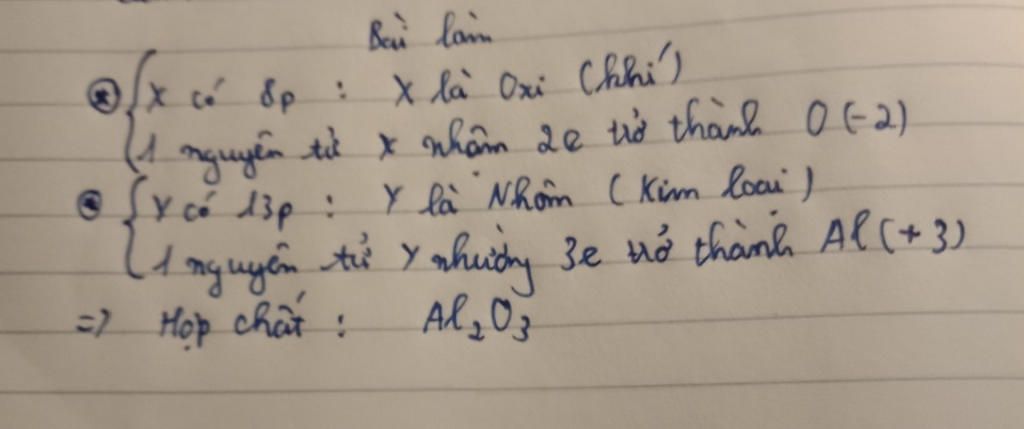 Bài làm
* { X có 8p : X là Oxi (khí)
1 nguyên tử X nhận 2e trở thành O (-2)
* { Y có 13p : Y là Nhôm (Kim loại)
1 nguyên tử Y nhường 3e trở thành Al (+3)
=> Hợp chất : Al₂O₃